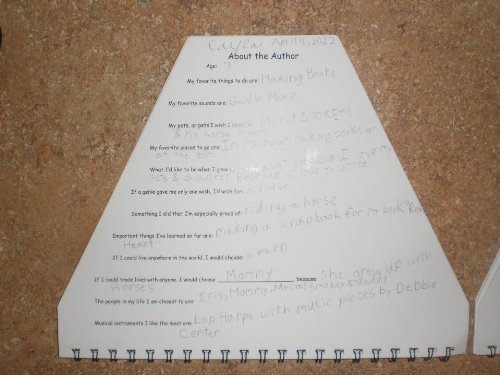 Cayla April 11, 2012
About the Author
Age: 7
My favorite things to do are: Making Books
My favorite sounds are: Gentle Music
My pets, or pets I wish I could My cat SMOKEY!
& My horse
My favorite places to go are: In my room making books or
at the
What I'd like to be when I grow because I love my
Pets & author because I love to write
If a genie gave me only one wish, I'd wish for: horse
Something I did that I'm especially proud of: riding a horse
Important things I've learned so far are: making a scrapbook for my book Red
Heart
If I could live anywhere in the world, I would choose a barn
If I could trade lives with anyone, I would choose Mommy because she grew up with
Horses
The people in my life I am closest to are: Iris, Mommy, My cat Smokey & daddy
Musical instruments I like the most are: Lap Harps with music pieces by Debbie
Center